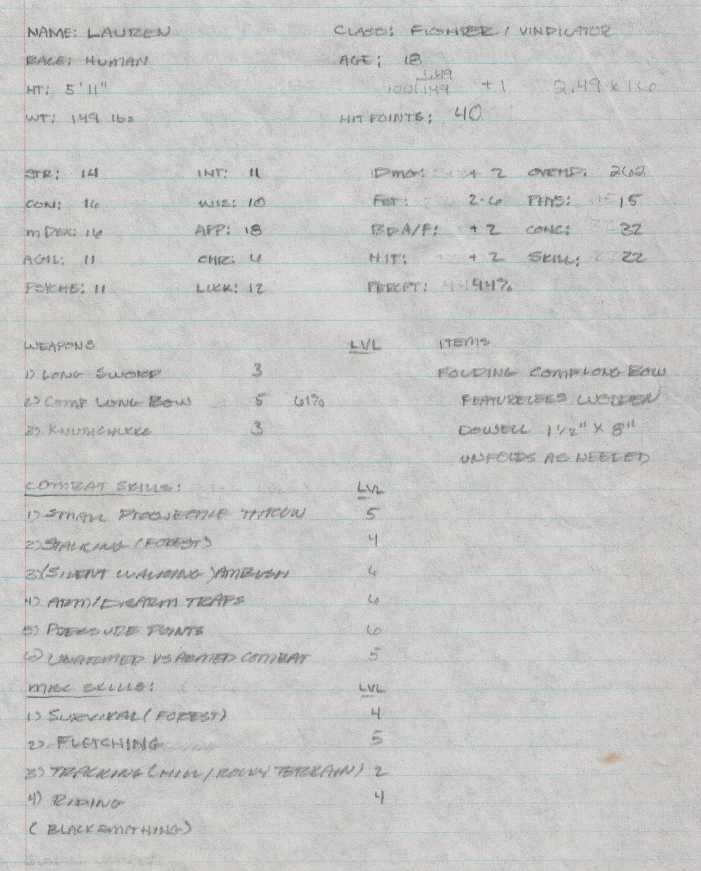 NAME: LAUREN CLASS: FIGHTER / VINDICATOR
RACE: HUMAN AGE: 18
1.49
HT: 5'11" 100/149 +1 2.49 x 16
WT: 149 lbs HIT POINTS: 40
STR: 14 INT: 11 DMG: +2 OVERHD: 262
CON: 16 WIS: 10 2-6 PHYS: 15
m DEX: 16 APP: 18 BDA/F: +2 CONC: 32
AGIL: 11 CHR: 6 HIT: +2 SKILL: 22
PSYCHE: 11 LUCK: 12 PERCPT: 44%
WEAPONS LVL ITEMS
1) LONG SWORD 3 FOLDING COMP LONG BOW
2) COMP LONG BOW 5 61% FEATURELESS WOODEN
3) KNUNCHUKKS 3 DOWELL 1 1/2" X 8"
UNFOLDS AS NEEDED
COMBAT SKILLS: LVL
1) SMALL PROJECTILE THROW 5
2) STALKING (FOREST) 4
3) (SILENT WALKING) AMBUSH 6
4) ARM/DISARM TRAPS 6
5) PRESSURE POINTS 6
6) UNARMED VS ARMED COMBAT 5
MISC SKILLS: LVL
1) SURVIVAL (FOREST) 4
2) FLETCHING 5
3) TRACKING (HILL / ROCKY TERRAIN) 2
4) RIDING 4
(BLACKSMITHING)